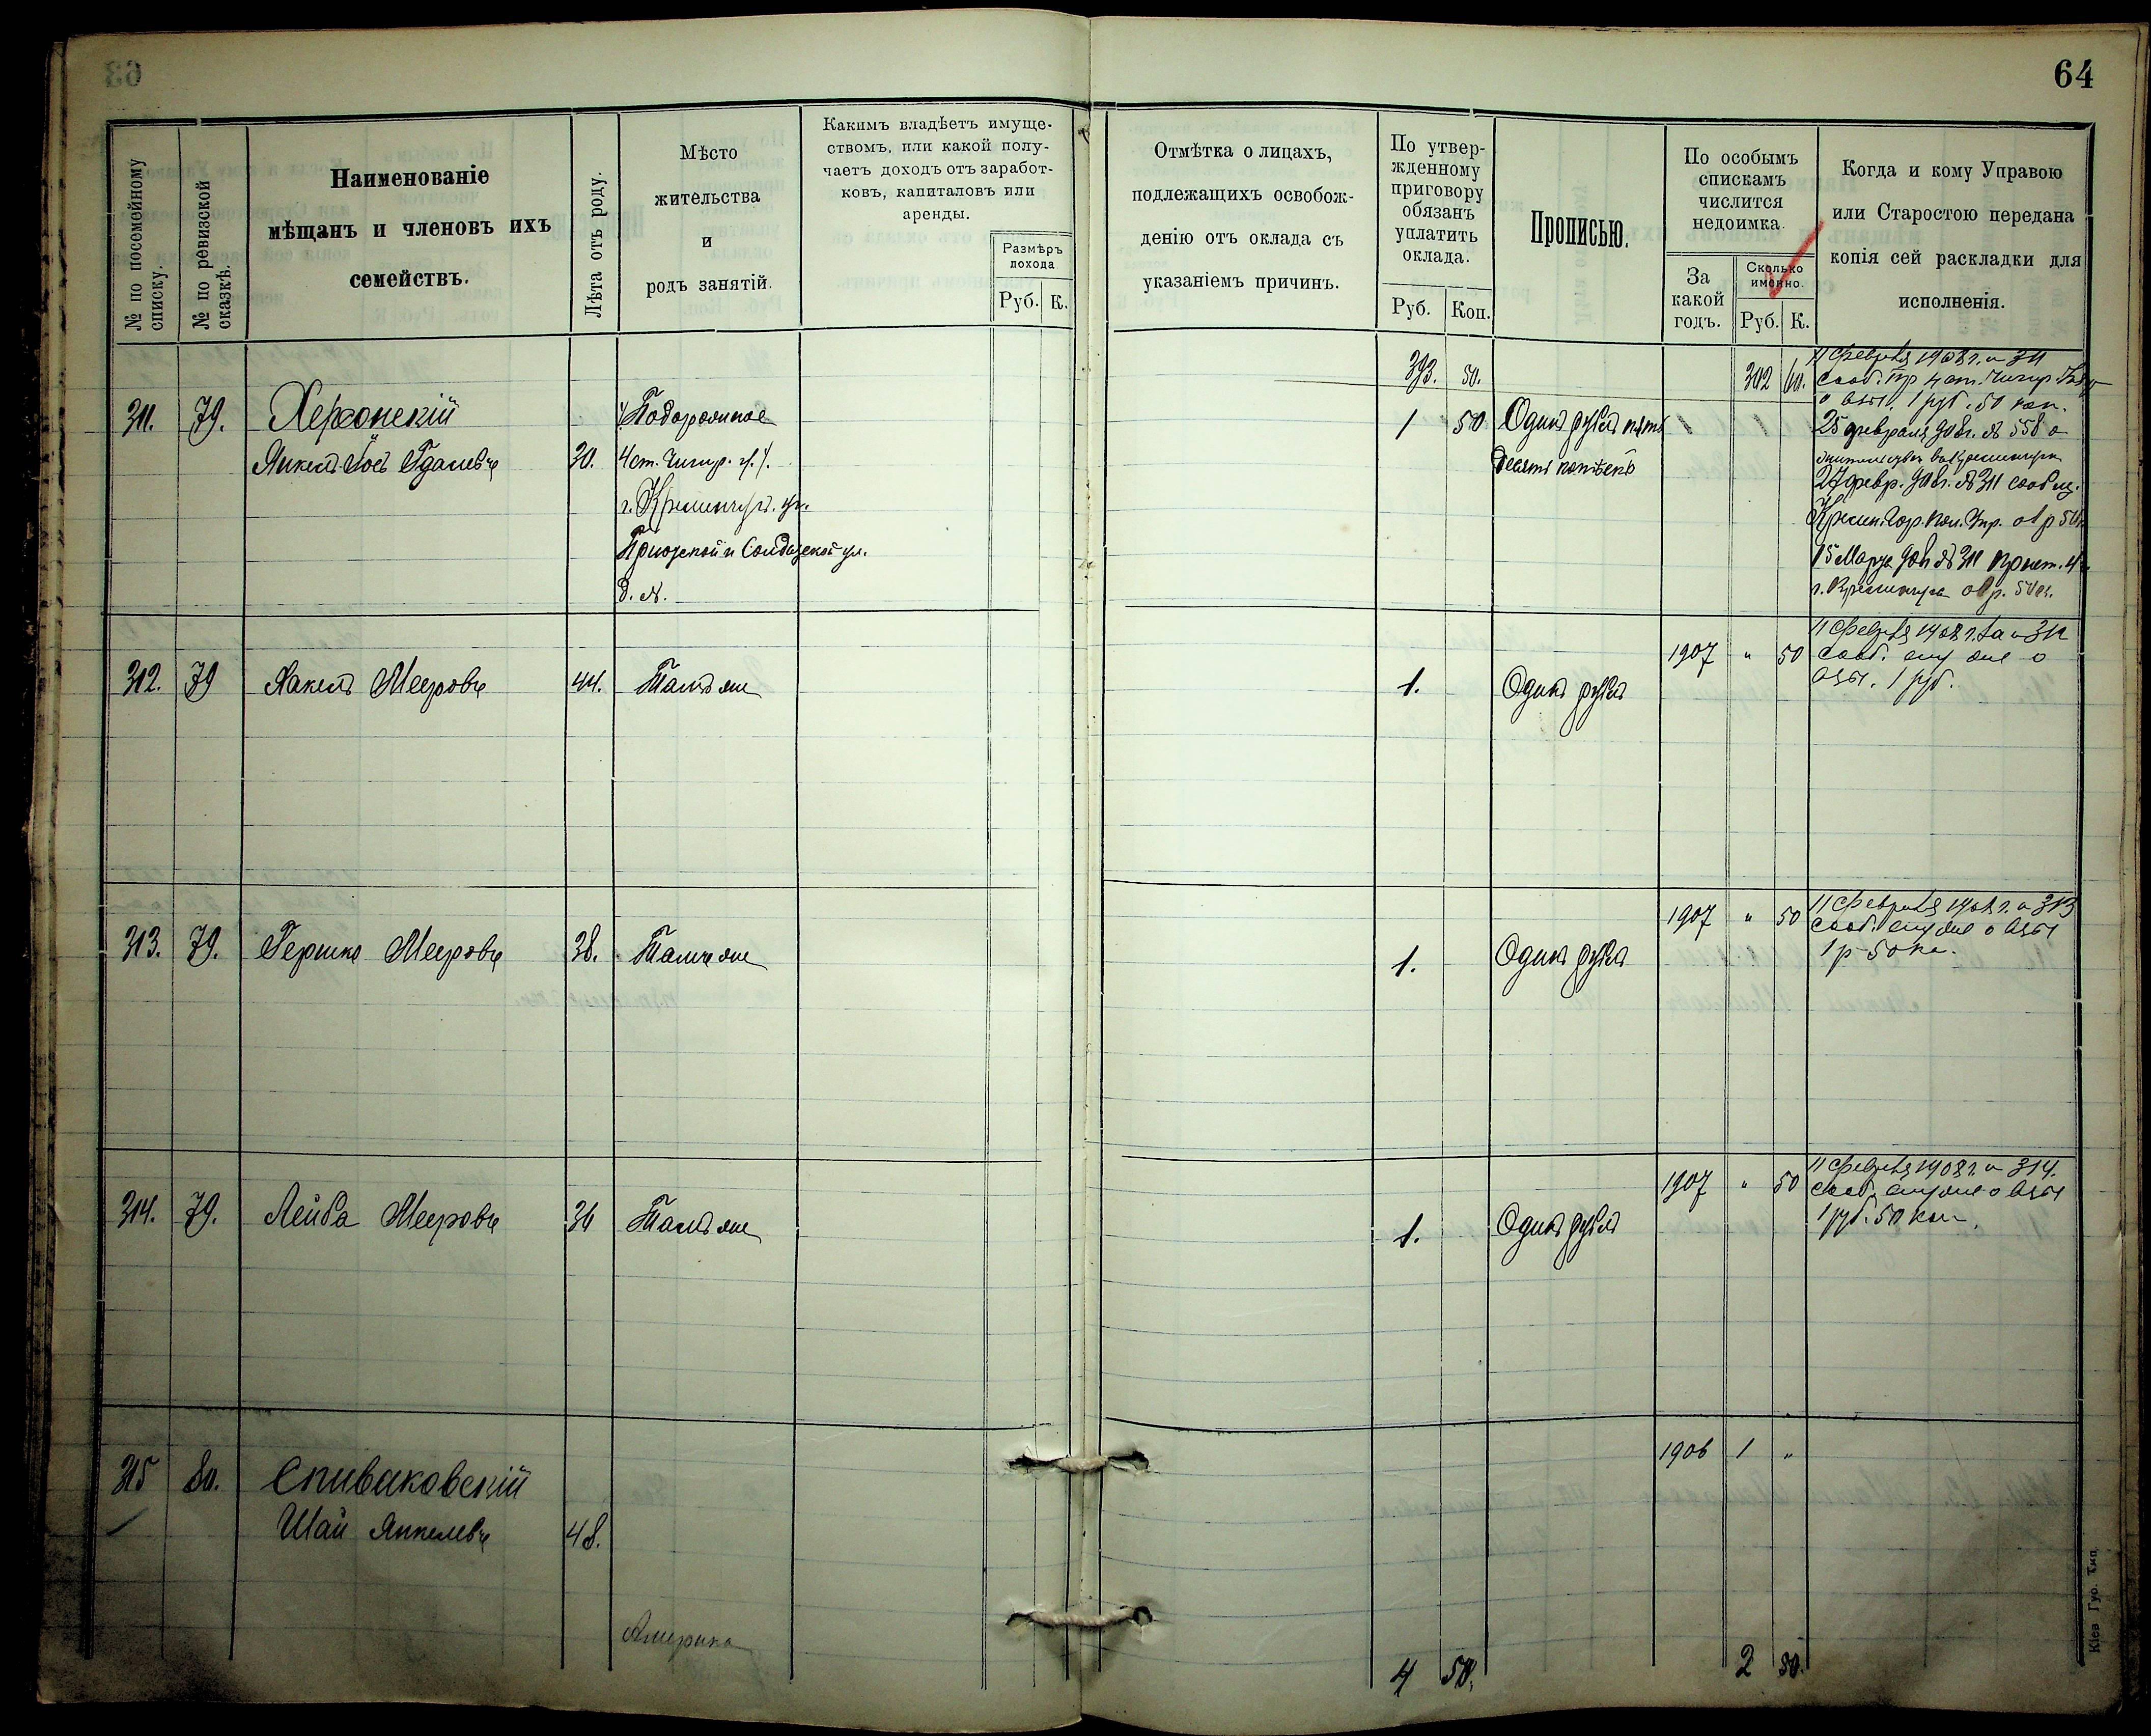 64
№ по посемейному списку.
№ по ревизской сказкѣ.
Наименованіе
мѣщанъ и членовъ ихъ
семействъ.
Лѣта отъ роду.
Мѣсто
жительства
и
родъ занятій.
Какимъ владѣетъ имуще-
ствомъ, или какой полу-
чаетъ доходъ отъ заработ-
ковъ, капиталовъ или
аренды.
Размѣръ
дохода
Руб. К.
Отмѣтка о лицахъ,
подлежащихъ освобож-
денію отъ оклада съ
указаніемъ причинъ.
По утвер-
жденному
приговору
обязанъ
уплатить
оклада.
Руб. Коп.
Прописью.
По особымъ
спискамъ
числится
недоимка.
За
какой
годъ.
Сколько
именно.
Руб. К.
Когда и кому Управою
или Старостою передана
копія сей раскладки для
исполненія.
393. 50.
302 60.
311. 79. Херсонскій
Янкель Іось Гдалевъ 30.
Подорожное
4 ст. Чигир. у.
г. Кременчугъ. уг.
и Солдатской ул.
д. №.
1 50 Одинъ рубль пять
десятъ копѣекъ
11 Февраля 1908 г. № 311
сооб. Пр 4 ст. Чигир.
о взыс. 1 руб. 50 коп.
25 февраля 908г. № 558 о
27 февр. 908г. № 311 сообщ.
Кремен. Гор. Пол. Упр. о 1 р 50 к.
15 Марта 908 № 311 Прист. 4
г. Кременчуга о 1 р. 50 к.
312. 79 Хакель Мееровъ 44. Тамъ же
1. Одинъ рубль
1907 " 50
11 Февраля 1908 г. за № 312
сооб. ему же о
взы. 1 руб.
313. 79. Гершко Мееровъ 38. Тамъ же
1. Одинъ рубль
1907 " 50
11 Февраля 1908 г. № 313
сооб. ему же о взы
1 р 50 ко.
314. 79. Лейба Мееровъ 36 Тамъ же
1. Одинъ рубль
1907 " 50
11 Февраля 1908 г. № 314.
сооб. ему же о взы
1 руб. 50 коп.
315 80. Спиваковскій
Шай Янкелевъ 48.
Америка
1906 1 "
4 50.
2 50.
Кіев Губ. Тип.